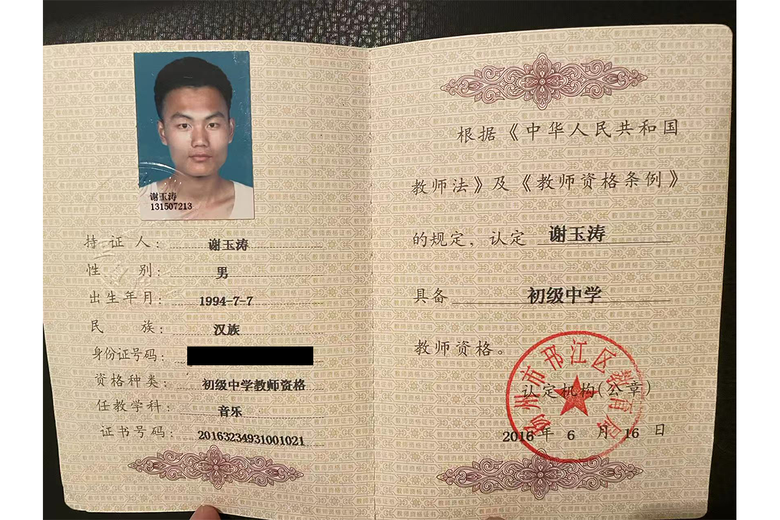 谢玉涛
131507213
持证人：谢玉涛
性别：男
出生年月：1994-7-7
民族：汉族
身份证号码：
资格种类：初级中学教师资格
任教学科：音乐
证书号码：20163234931001021
根据《中华人民共和国
教师法》及《教师资格条例》
的规定，认定谢玉涛
具备初级中学
教师资格。
扬州市邗江区教育局
认定机构(公章)
2016年6月16日